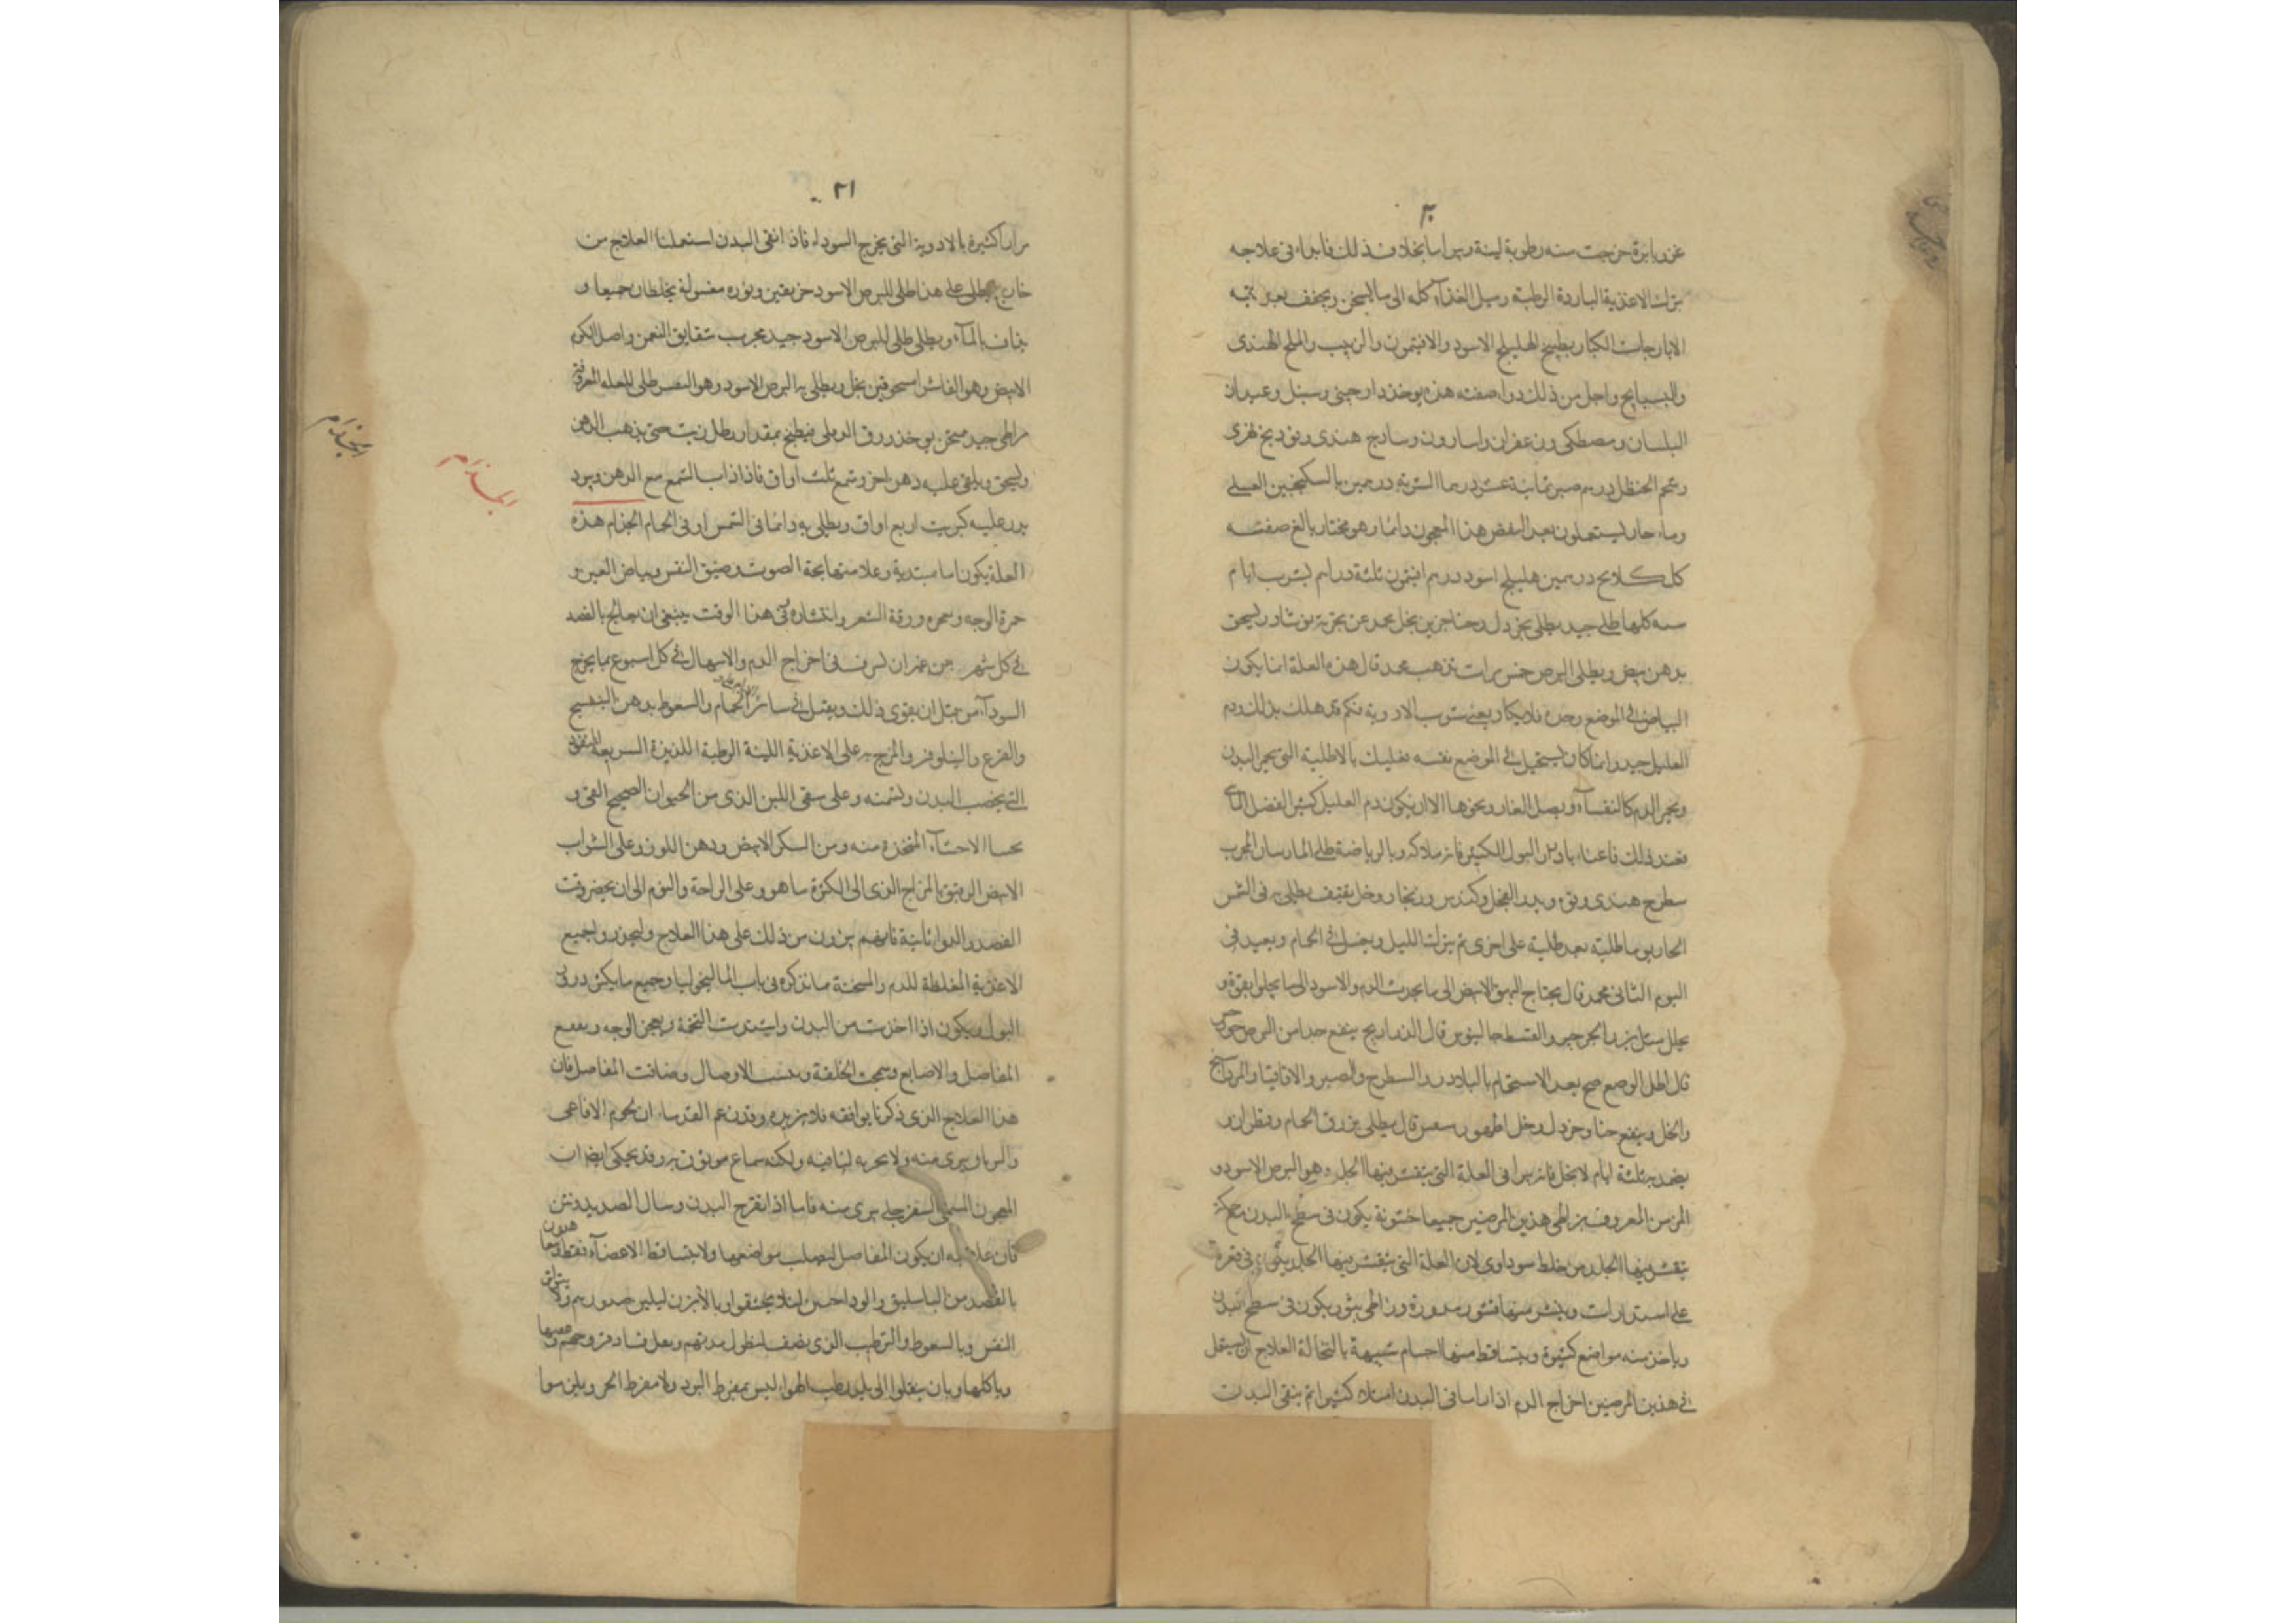 ٣٠
غرز بابرة خرجت منه رطوبة لبنية وبرا سا بخلاف ذلك فابدا في علاجه
بترك الاغذية الباردة الرطبة وميل الغذاء كله الى ما يسخن ويجفف بعد تنقية
الايارجات الكبار بطبيخ الهليلج الاسود والافتيمون والزبيب والملح الهندى
والبسبايج واجل من ذلك دوا صفته هذه يوخذ دارچينى وسنبل وعيدان
البلسان ومصطكى وزعفران واسارون وساذج هندى وفودنج نهرى
وشحم الحنظل درهم صبر ثمانية عشر درهما الشربة درهمين بالسكنجبين العسلى
وماء حار ليستعملون بعد النفض هذا المعجون دائما وهو مختار بالغ صفته
كل كلانج درهمين هليلج اسود درهم افتيمون ثلثة دراهم يشرب ايام
سنه كلها طلى جيد يطلى بخردل وحنا جزين بخل محمد عن تجربة نوشادر يسحق
بدهن بيض ويطلى البرص خمس مرات يذهب محمد قال هذه العلة انما يكون
البياض فى الموضع وحده فلا يكاد يعنى شرب الادوية فكم قد هلك بذلك ودم
العليل جيد وانما كان يستحيل فى الموضع نفسه فعليك بالاطلية التى تحمر البدن
وتجر الدم كالنفساء وبصل الفار ونحوها الا ان يكون دم العليل كثير الفضل المائى
فعند ذلك فاعنا بادرار البول الكثير فانه ملاكه وبالرياضة طلى المارستان المجرب
شيطرج هندى وفوه وبزر الفجل وكندس وزنجار وخل ثقيف يطلى به فى الشمس
الحار يوما طلية بعد طلية على اخرى ثم يترك الليل ويغسل فى الحمام ويعيد فى
اليوم الثانى محمد قال يحتاج البهق الابيض الى ما يجرد الدم والاسود الى ما يجلوا بقوة و
يحلل مثل بزر الجرجير والقسط جالينوس قال الذراريح ينفع جدا من البرص
قال اطل الوضح صح بعد الاستحمام بالبلادر والشيطرج والصبر والاقاقيا والمرداسنج
والخل وينفع حنا وخردل وخل اطهورسفس قال يطلى بزرق الحمام ونظرون
يضمد به ثلثة ايام لا يحل فانه يبرا فى العلة التى يتقشر منها الجلد وهو البرص الاسود و
المرض المعروف بزاطى هذين المرضين جميعا خشونة يكون فى سطح البدن
يتقشر منها الجلد من خلط سوداوى لان العلة التى يتقشر منها الجلد فى قعره
على استدارات وينشر منها قشور مدورة وزاطى بثور يكون فى سطح البدن
وياخذ منه مواضع كثيرة ويتساقط منها اجسام شبيهة بالنخالة العلاج ان يستعمل
فى هذين المرضين اخراج الدم اذا راسا فى البدن امتلاء كثيرا ثم ينقى البدن
٣١
مرارا كثيرة بالادوية التى يخرج السودا فاذا انقى البدن استعملنا العلاج من
خارج يطلى على هذا طلى للبرص الاسود خربقين ونوره مغسولة يخلطان جميعا و
يذاف بالماء ويطلى طلى للبرص الاسود جيد مجرب شقايق النعمن واصل الكرم
الابيض وهو الفاشرا مسحوقين بخل ويطلى به البرص الاسود وهو التقشر طلى للعله المعروفة
بزاطى جيد ممتحن يوخذ ورق الدفلى فيطبخ بمقدار رطل زيت حتى يذهب الدهن
ويسحق ويلقى عليه دهن اخر وشمع ثلث اواق فاذا ذاب الشمع مع الدهن وبرد
يذر عليه كبريت اربع اواق ويطلى به دائما فى الشمس او فى الحمام الجذام هذه
العلة يكون اما مبتدية وعلامتها بحة الصوت وضيق النفس وبياض العين و
حمرة الوجه وسمره ورقة الشعر وانتثاره فى هذا الوقت ينبغى ان يعالج بالفصد
فى كل شهر من غير ان يسرف فى اخراج الدم والاسهال فى كل اسبوع بما يخرج
السوداء من قبل ان يقوى ذلك ويقبل فى سائر الحمام والسعوط بدهن البنفسج
والقرع والنيلوفر والمزج به على الاغذية اللينة الرطبة اللذيذة السريعة النفوذ
التى يخصب البدن ويسمنه وعلى سقى اللبن الذى من الحيوان الصحيح الفتى و
بحسا الاحساء المتخذة منه ومن السكر الابيض ودهن اللوز وعلى الشراب
الابيض الرقيق بالمزاج الذى الى الكثرة ما هو وعلى الراحة والنوم الى ان يحضر وقت
الفصد والدوا ثانية فانهم يبرون من ذلك على هذا العلاج وليحذروا جميع
الاغذية المغلظة للدم والمسخنة ما نذكره فى باب الماليخوليا وجميع ما يكثر درور
البول ويكون اذا اخذت من البدن واشتدت البحة وتهيج الوجه وتعقد
المفاصل والاصابع وسمجت الخلقة ويبست الاوصال وضاقت المفاصل فان
هذا العلاج الذى ذكرنا يوافقه فلا يزيده وقد زعم القدماء ان لحوم الافاعى
والدرياق يبرى منه ولا تجربه لنا فيه ولكنه سماع موثوق به وقد يحكى ايضا ان
المعجون المسمى السفرجلى يبرى منه فاما اذا تقرح البدن وسال الصديد ونتن
فان علاجه ان يكون المفاصل ليصلب مواضعها ولا يتساقط الاعضاء فقط
بالفصد من الباسليق والوداجين لئلا يختنقوا وبالابزن ليلين صدورهم
النفس وبالسعوط والترطيب الذى يضف لتطول مدتهم وبعلف
وباكلها وبان ينقلوا الى بلد رطب الهواء ليس بمفرط البرد ولا مفرط الحر ويلزموا
الجذام
الجذام